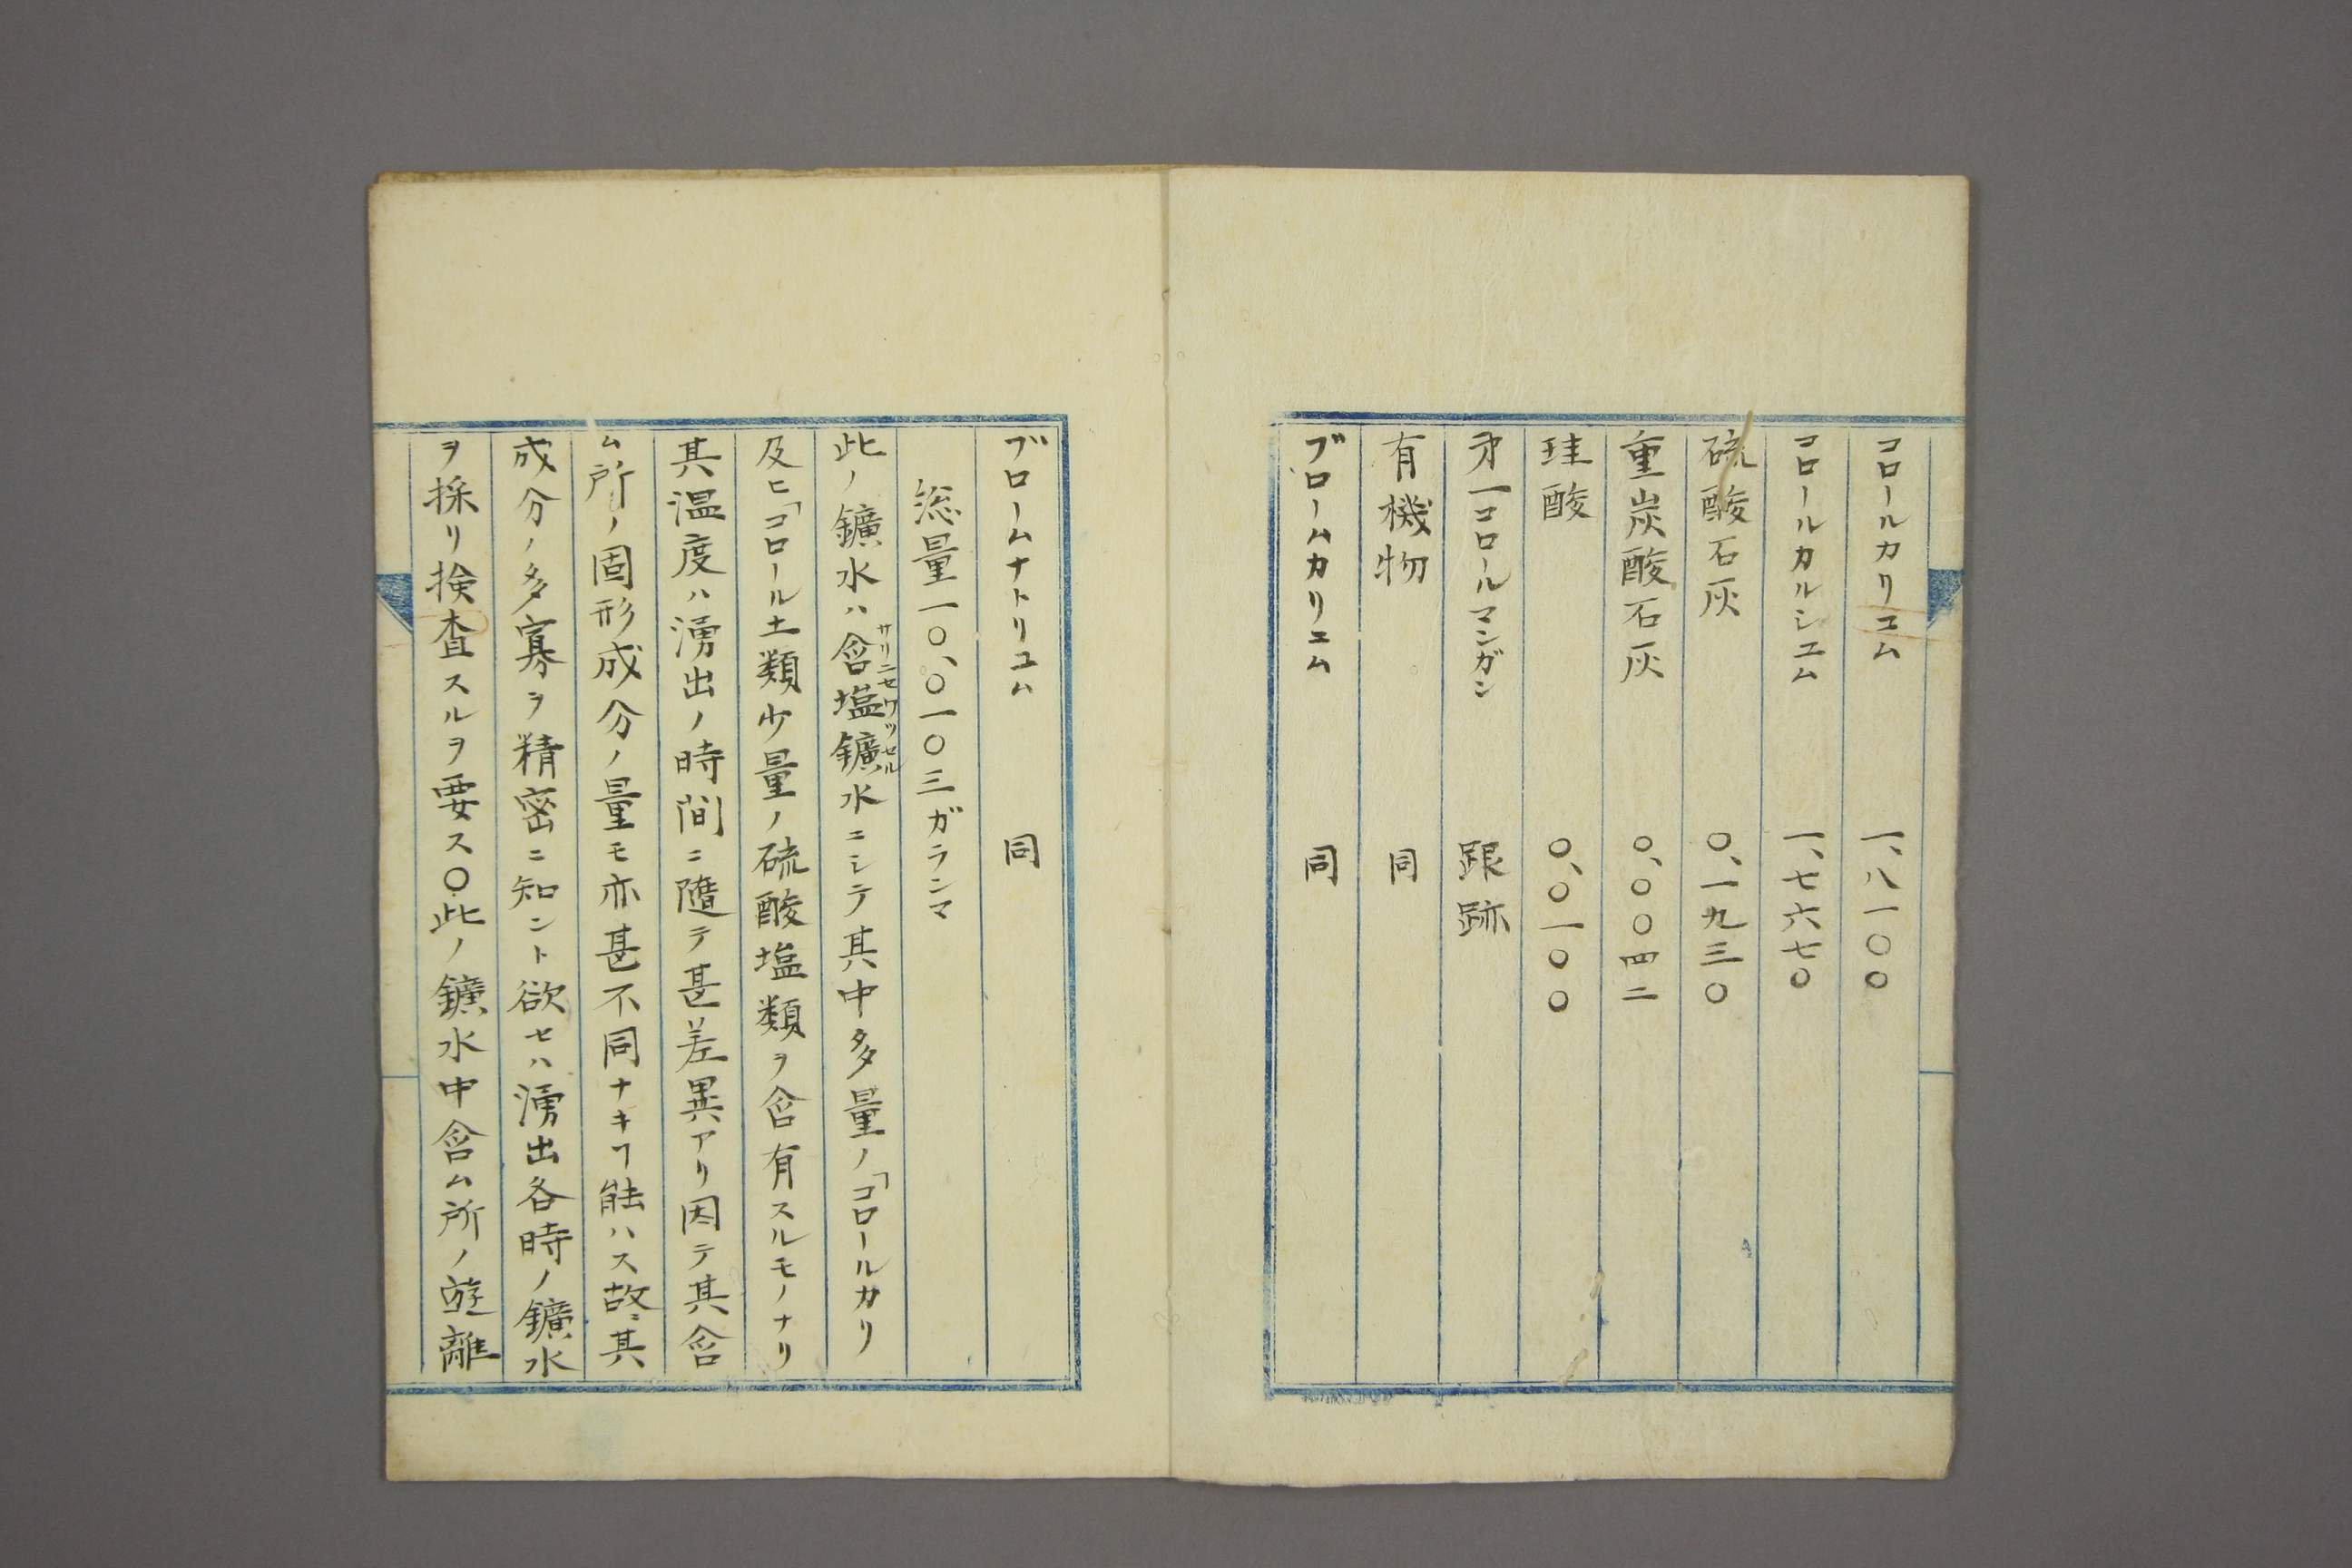 コロールカリエム　一、八一〇〇
コロールカルシエム　一、七六七〇
硫酸石灰　〇、一九三〇
重炭酸石灰　〇、〇〇四二
珪酸　〇、〇一〇〇
㐧一コロールマンガン　跟跡
有機物　同
ブロームカリエム　同
ブロームナトリユム　同
総量一〇、〇一〇三ガランマ
此ノ鑛水ハ含塩鑛水ニシテ其中多量ノ「コロールカリ
サリニセワツセル
及ヒ「コロール土類少量ノ硫酸塩類ヲ含有スルモノナリ
其温度ハ湧出ノ時間ニ隨テ甚差異アリ因テ其含
ム所ノ固形成分ノ量モ亦甚不同ナキヿ能ハス故ニ其
成分ノ多寡ヲ精密ニ知ント欲セハ湧出各時ノ鑛水
ヲ採リ検査スルヲ要ス〇此ノ鑛水中含ム所ノ遊離